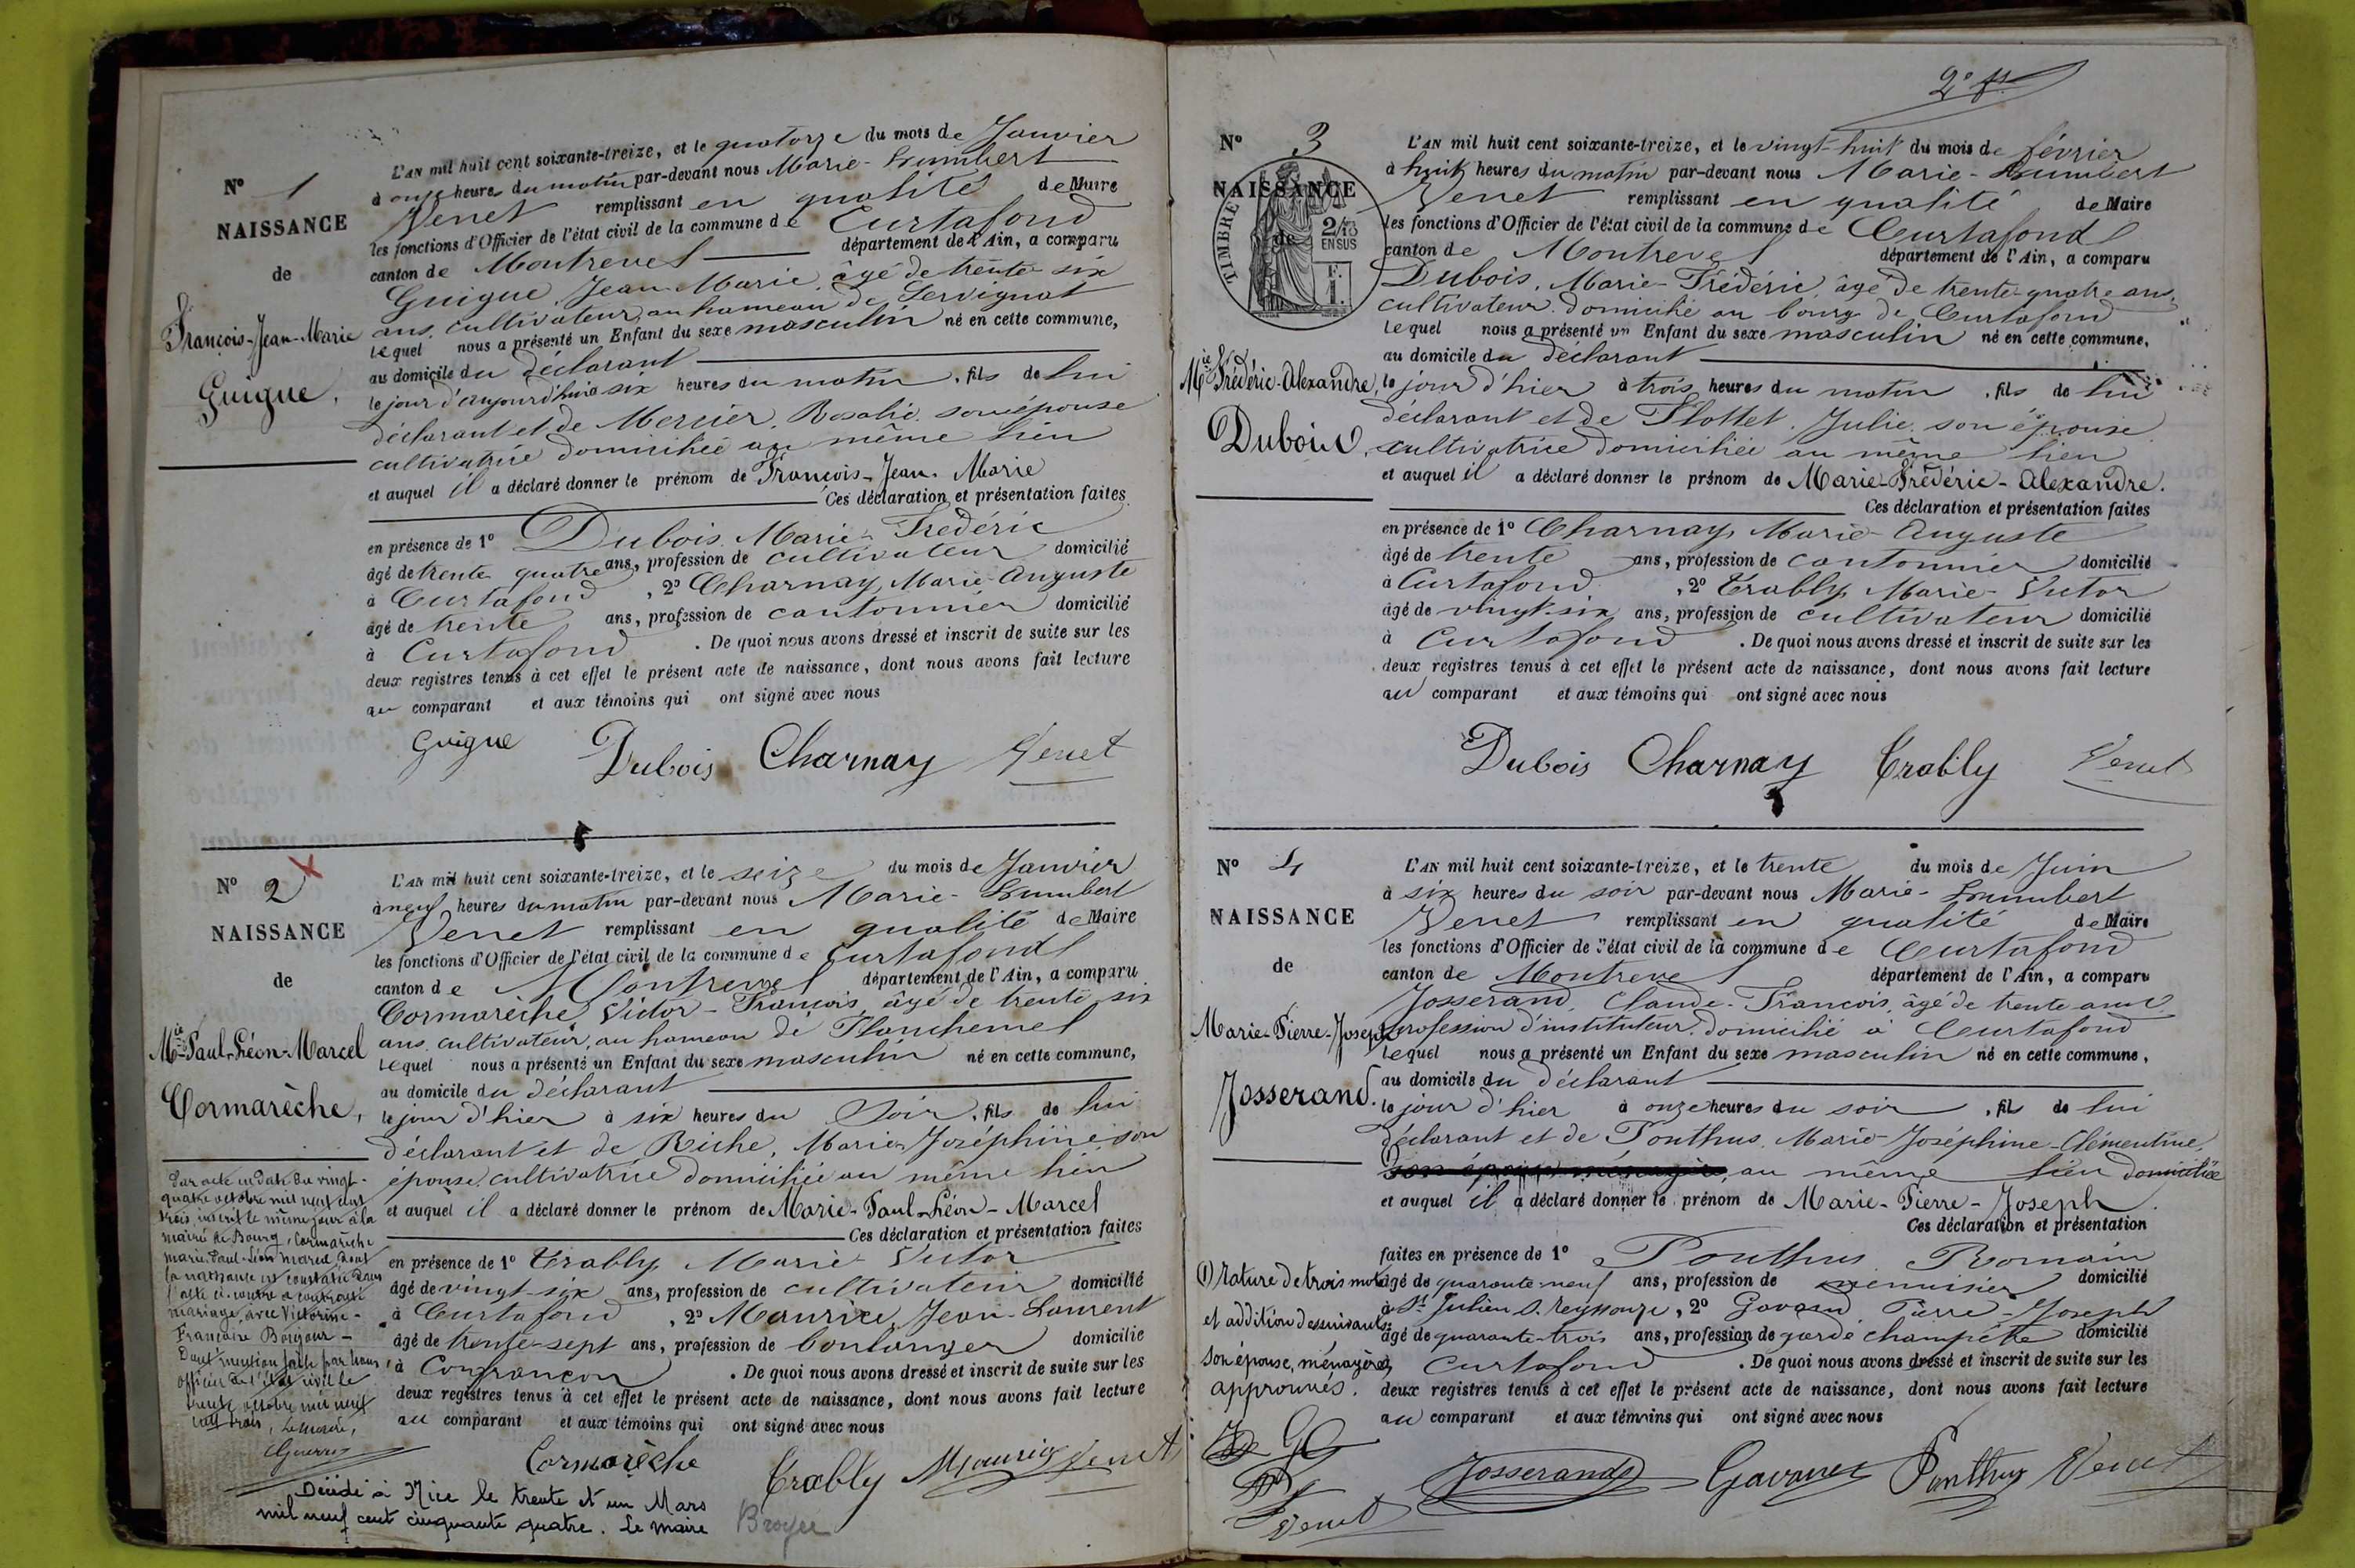 N° 1
NAISSANCE
de
François-Jean-Marie
Guigue,
L'AN mil huit cent soixante-treize, et le quatorze du mois de Janvier
à onze heures du matin par-devant nous Marie-Humbert
Venet remplissant en qualité de Maire
les fonctions d'Officier de l'état civil de la commune de Curtafond
canton de Montrevel département de l'Ain, a comparu
Guigue, Jean-Marie, âgé de trente-six
ans, cultivateur, au hameau de Servignat
lequel nous a présenté un Enfant du sexe masculin né en cette commune,
au domicile du déclarant
le jour d'aujourd'hui à six heures du matin, fils de lui
déclarant et de Mercier, Rosalie, son épouse
cultivatrice domiciliée au même lieu
et auquel il a déclaré donner le prénom de François-Jean-Marie
Ces déclaration et présentation faites
en présence de 1° Dubois, Marie-Frédéric
âgé de trente-quatre ans, profession de cultivateur domicilié
à Curtafond, 2° Charnay, Marie-Auguste
âgé de trente ans, profession de cantonnier domicilié
à Curtafond. De quoi nous avons dressé et inscrit de suite sur les
deux registres tenus à cet effet le présent acte de naissance, dont nous avons fait lecture
au comparant et aux témoins qui ont signé avec nous
Guigue Dubois Charnay Venet
N° 2
NAISSANCE
de
Mie-Paul-Léon-Marcel
Cormarèche,
L'AN mil huit cent soixante-treize, et le seize du mois de Janvier
à neuf heures du matin par-devant nous Marie-Humbert
Venet remplissant en qualité de Maire
les fonctions d'Officier de l'état civil de la commune de Curtafond
canton de Montrevel département de l'Ain, a comparu
Cormarèche, Victor-François, âgé de trente-six
ans, cultivateur, au hameau de Planchemel
lequel nous a présenté un Enfant du sexe masculin né en cette commune,
au domicile du déclarant
le jour d'hier à six heures du Soir, fils de lui
déclarant et de Riche, Marie-Joséphine, son
épouse, cultivatrice domiciliée au même lieu
et auquel il a déclaré donner le prénom de Marie-Paul-Léon-Marcel
Ces déclaration et présentation faites
en présence de 1° Trably, Marie-Victor
âgé de vingt-six ans, profession de cultivateur domicilié
à Curtafond, 2° Maurice, Jean-Laurent
âgé de trente-sept ans, profession de boulanger domicilié
à Confrançon. De quoi nous avons dressé et inscrit de suite sur les
deux registres tenus à cet effet le présent acte de naissance, dont nous avons fait lecture
au comparant et aux témoins qui ont signé avec nous
Cormarèche Trably Maurice Venet
Par acte en date du vingt-
quatre octobre mil neuf cent
trois, inscrit le même jour à la
mairie de Bourg, Cormarèche
Marie-Paul-Léon-Marcel, dont
la naissance est constatée dans
l'acte ci-contre a contracté
mariage avec Victorine-
Françoise Bonjour-
Dont mention faite par nous,
officier de l'état civil le
trente octobre mil neuf
cent trois, Le Maire,
Décédé à Nice le trente et un Mars
mil neuf cent cinquante quatre. Le Maire Broyer
2e
N° 3
NAISSANCE
de
TIMBRE
2/10
EN SUS
Mie-Frédéric-Alexandre,
Dubois,
L'AN mil huit cent soixante-treize, et le vingt-huit du mois de février
à huit heures du matin par-devant nous Marie-Humbert
Venet remplissant en qualité de Maire
les fonctions d'Officier de l'état civil de la commune de Curtafond
canton de Montrevel département de l'Ain, a comparu
Dubois, Marie-Frédéric, âgé de trente-quatre ans,
cultivateur domicilié au bourg de Curtafond
lequel nous a présenté un Enfant du sexe masculin né en cette commune,
au domicile du déclarant
le jour d'hier à trois heures du matin, fils de lui
déclarant et de Flottet, Julie, son épouse
cultivatrice domiciliée au même lieu
et auquel il a déclaré donner le prénom de Marie-Frédéric-Alexandre.
Ces déclaration et présentation faites
en présence de 1° Charnay, Marie-Auguste
âgé de trente ans, profession de cantonnier domicilié
à Curtafond, 2° Trably, Marie-Victor
âgé de vingt-six ans, profession de cultivateur domicilié
à Curtafond. De quoi nous avons dressé et inscrit de suite sur les
deux registres tenus à cet effet le présent acte de naissance, dont nous avons fait lecture
au comparant et aux témoins qui ont signé avec nous
Dubois Charnay Trably Venet
N° 4
NAISSANCE
de
Marie-Pierre-Joseph
Josserand.
L'AN mil huit cent soixante-treize, et le trente du mois de Juin
à six heures du soir par-devant nous Marie-Humbert
Venet remplissant en qualité de Maire
les fonctions d'Officier de l'état civil de la commune de Curtafond
canton de Montrevel département de l'Ain, a comparu
Josserand, Claude-François, âgé de trente ans,
profession d'instituteur, domicilié à Curtafond
lequel nous a présenté un Enfant du sexe masculin né en cette commune,
au domicile du déclarant
le jour d'hier à onze heures du soir, fils de lui
déclarant et de Ponthus, Marie-Joséphine-Clémentine,
son épouse ménagère, au même lieu domiciliée
et auquel il a déclaré donner le prénom de Marie-Pierre-Joseph.
Ces déclaration et présentation
faites en présence de 1° Ponthus Romain
âgé de quarante-neuf ans, profession de menuisier domicilié
à St Julien s. Reyssouze, 2° Gavand Pierre-Joseph
âgé de quarante-trois ans, profession de garde champêtre domicilié
Curtafond. De quoi nous avons dressé et inscrit de suite sur les
deux registres tenus à cet effet le présent acte de naissance, dont nous avons fait lecture
au comparant et aux témoins qui ont signé avec nous
(1) Rature de trois mots
et addition des suivants:
son épouse, ménagère,
approuvés.
Venet
Josserand Gavand Ponthus Venet